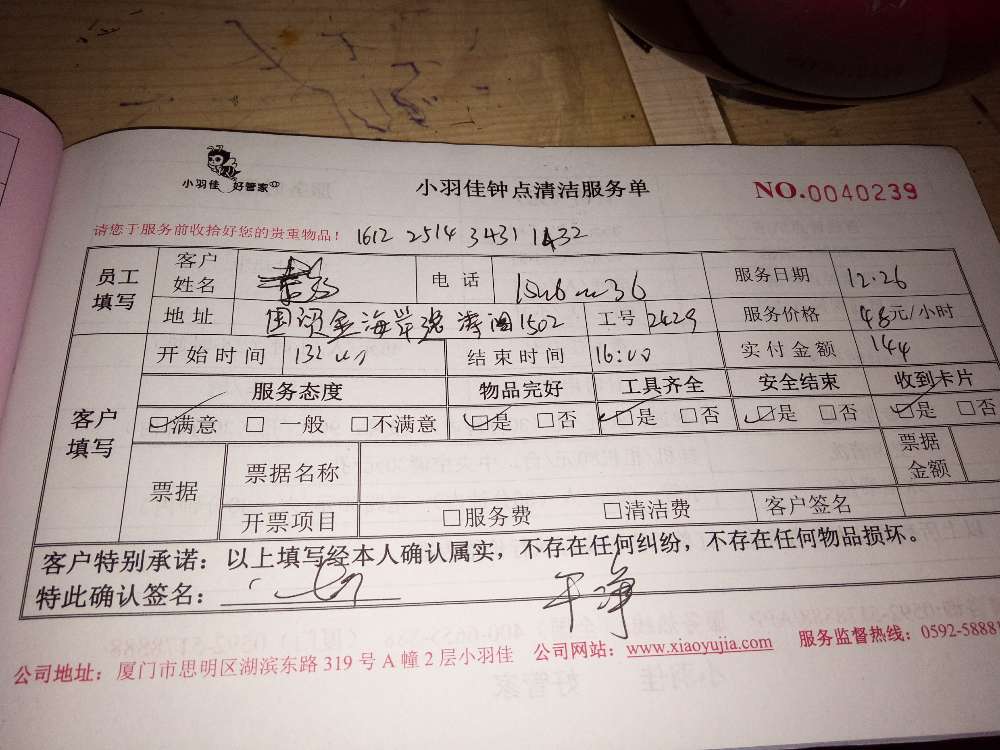 小羽佳 好管家
小羽佳钟点清洁服务单 NO.0040239
请您于服务前收拾好您的贵重物品! 1612 2514 3431 1432
员工填写 客户姓名 电话 服务日期 12.26
地址 国贸金海岸 1502 工号 2429 服务价格 48元/小时
客户填写 开始时间 结束时间 16:00 实付金额 144
服务态度 物品完好 工具齐全 安全结束 收到卡片
满意 一般 不满意 是 否 是 否 是 否 是 否
票据 票据名称 票据金额
开票项目 服务费 清洁费 客户签名
客户特别承诺:以上填写经本人确认属实,不存在任何纠纷,不存在任何物品损坏。
特此确认签名: 干净
公司地址:厦门市思明区湖滨东路319号A幢2层小羽佳 公司网站:www.xiaoyujia.com 服务监督热线:0592-58881